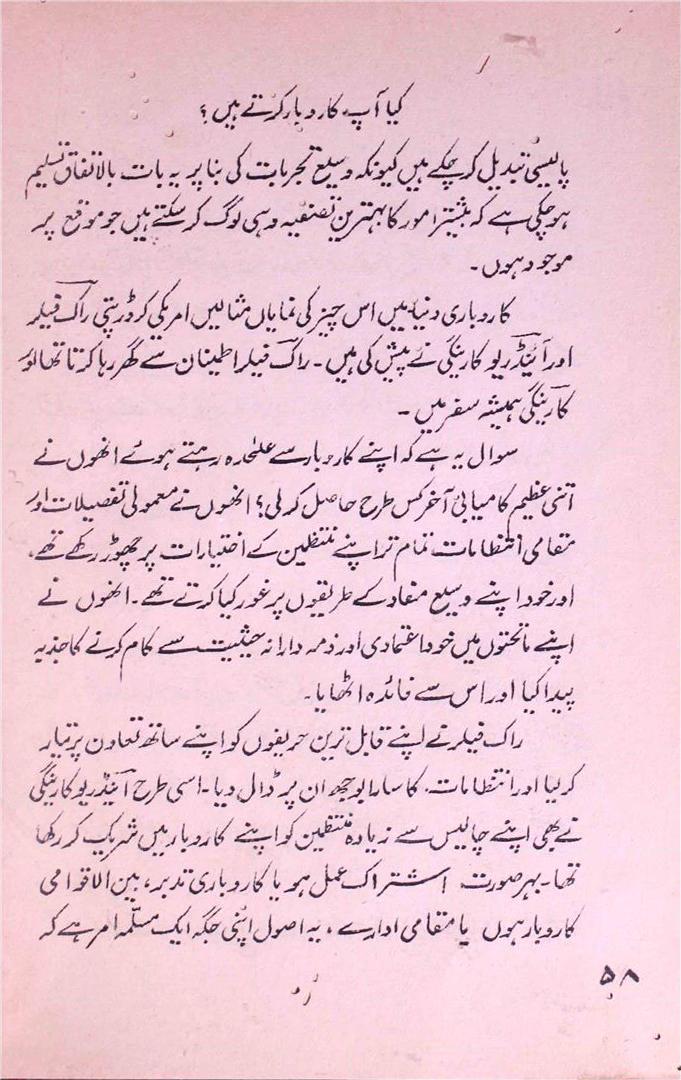 کیا آپ کاروبار کرتے ہیں؟
پالیسی تبدیل کر چکے ہیں کیونکہ وسیع تجربات کی بنا پر یہ بات بالاتفاق تسلیم
ہو چکی ہے کہ بیشتر امور کا بہترین تصفیہ وہی لوگ کر سکتے ہیں جو موقع پر
موجود ہوں۔
کاروباری دنیا میں اس چیز کی نمایاں مثالیں امریکی کروڑ پتی راک فیلر
اور اینڈریو کارنیگی نے پیش کی ہیں۔ راک فیلر اطینان سے گھر رہا کرتا تھا اور
کارنیگی ہمیشہ سفر میں۔
سوال یہ ہے کہ اپنے کاروبار سے علٰحدہ رہتے ہوئے انھوں نے
اتنی عظیم کامیابی آخر کس طرح حاصل کر لی؟ انھوں نے معمولی تفصیلات اور
مقامی انتظامات تمام تر اپنے منتظمین کے اختیارات پر چھوڑ رکھے تھے،
اور خود اپنے وسیع مفاد کے طریقوں پر غور کیا کرتے تھے۔ انھوں نے
اپنے ماتحتوں میں خود اعتمادی اور ذمہ دارانہ حیثیت سے کام کرنے کا جذبہ
پیدا کیا اور اس سے فائدہ اٹھایا۔
راک فیلر نے اپنے قابل ترین حریفوں کو اپنے ساتھ تعاون پر تیار
کر لیا اور انتظامات کا سارا بوجھ ان پر ڈال دیا۔ اسی طرح اینڈریو کارنیگی
نے بھی اپنے چالیس سے زیادہ منتظمین کو اپنے کاروبار میں شریک کر رکھا
تھا۔ بہر صورت اشتراک عمل ہو یا کاروباری تدبر، بین الاقوامی
کاروبار ہوں یا مقامی ادارے، یہ اصول اپنی جگہ ایک مسلّمہ امر ہے کہ
۵۸